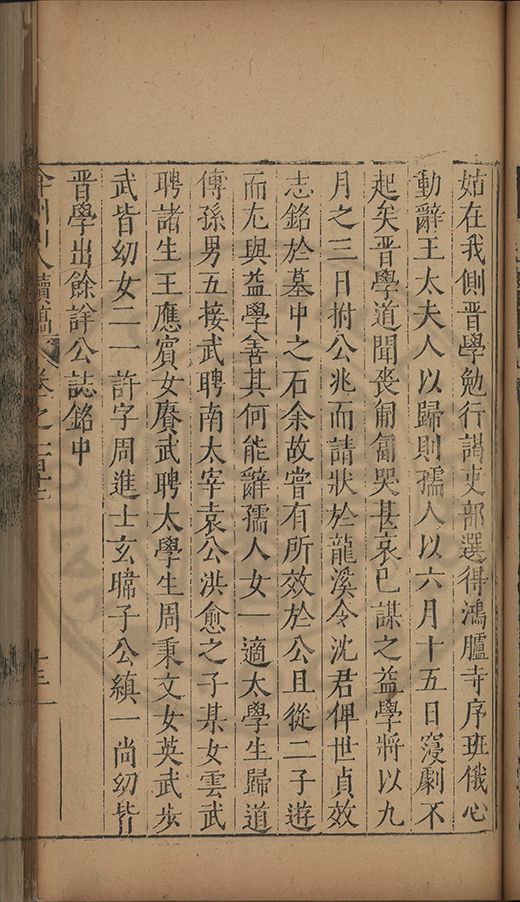 姑在我側晋學勉行謁吏部選得鴻臚寺序班俄心
動辭王太夫人以歸則孺人以六月十五日寖劇不
起矣晋學道聞喪匍匐哭甚哀已謀之益學將以九
月之三日拊公兆而請狀於龍溪令沈君俾世貞效
志銘於墓中之石余故嘗有所效於公且從二子遊
而尤與益學善其何能辭孺人女一適太學生歸道
傳孫男五接武聘南太宰袁公洪愈之子某女雲武
聘諸生王應賓女賡武聘太學生周秉文女英武步
武皆幼女二一許字周進士玄暐子公縝一尚幼皆
晋學出餘詳公誌銘中
弇州山人續稿 卷之一百十三
十三